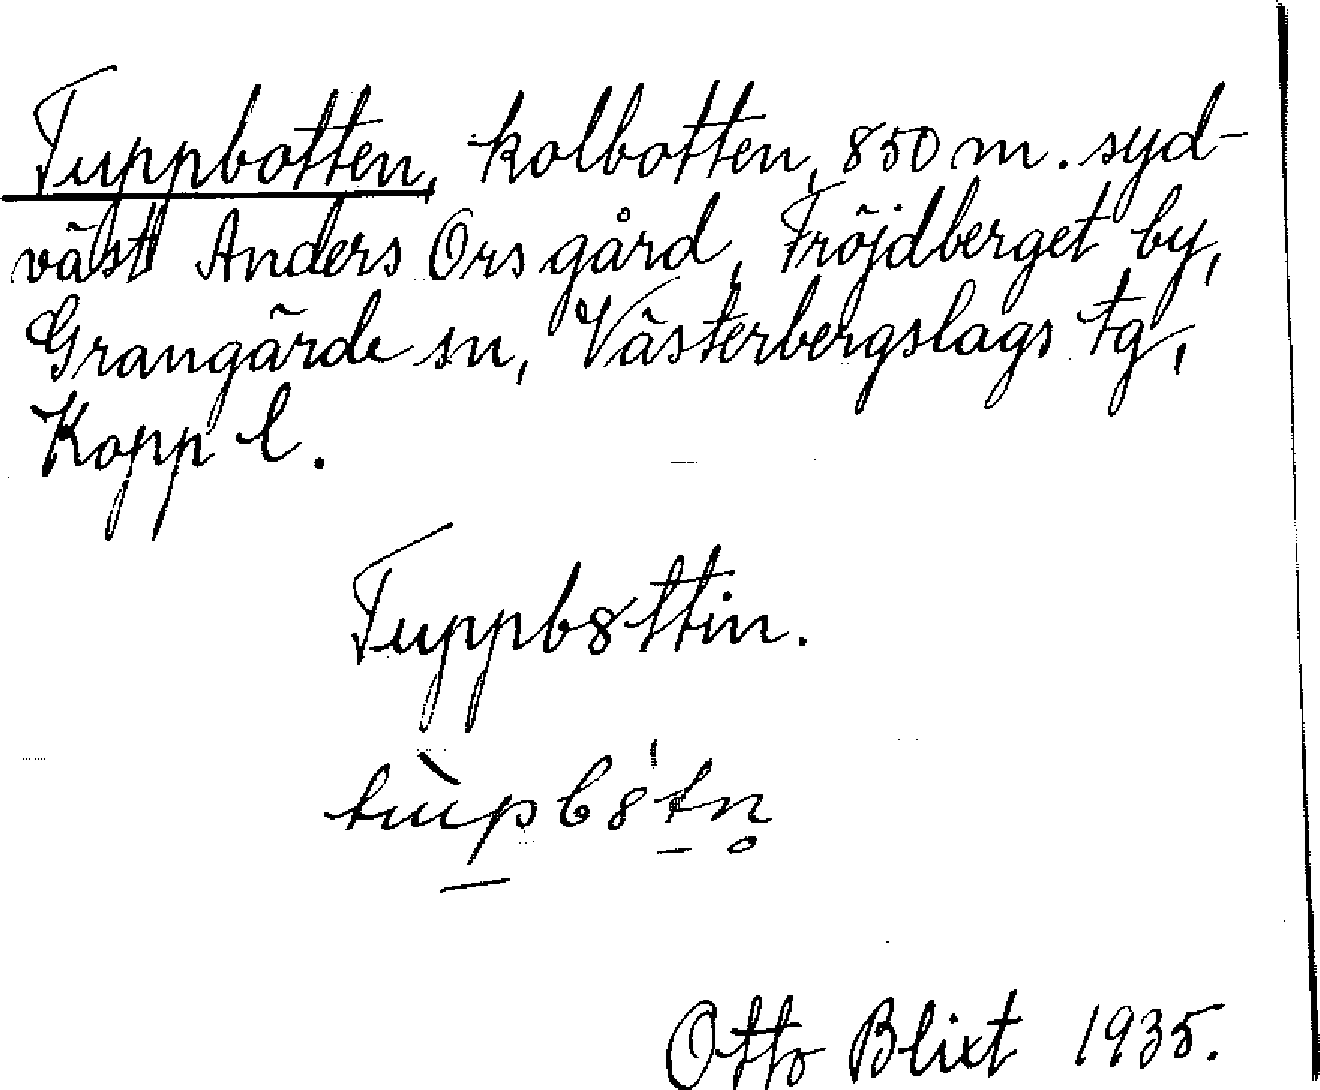 Tuppbotten, kolbotten, 850 m. syd-
väst Anders Ors gård, Fröjdberget by,
Grangärde sn, Västerbergslags tg,
Kopp l.
Tuppb8ttin.
tùpb8'tn̥
Otto Blixt 1935.